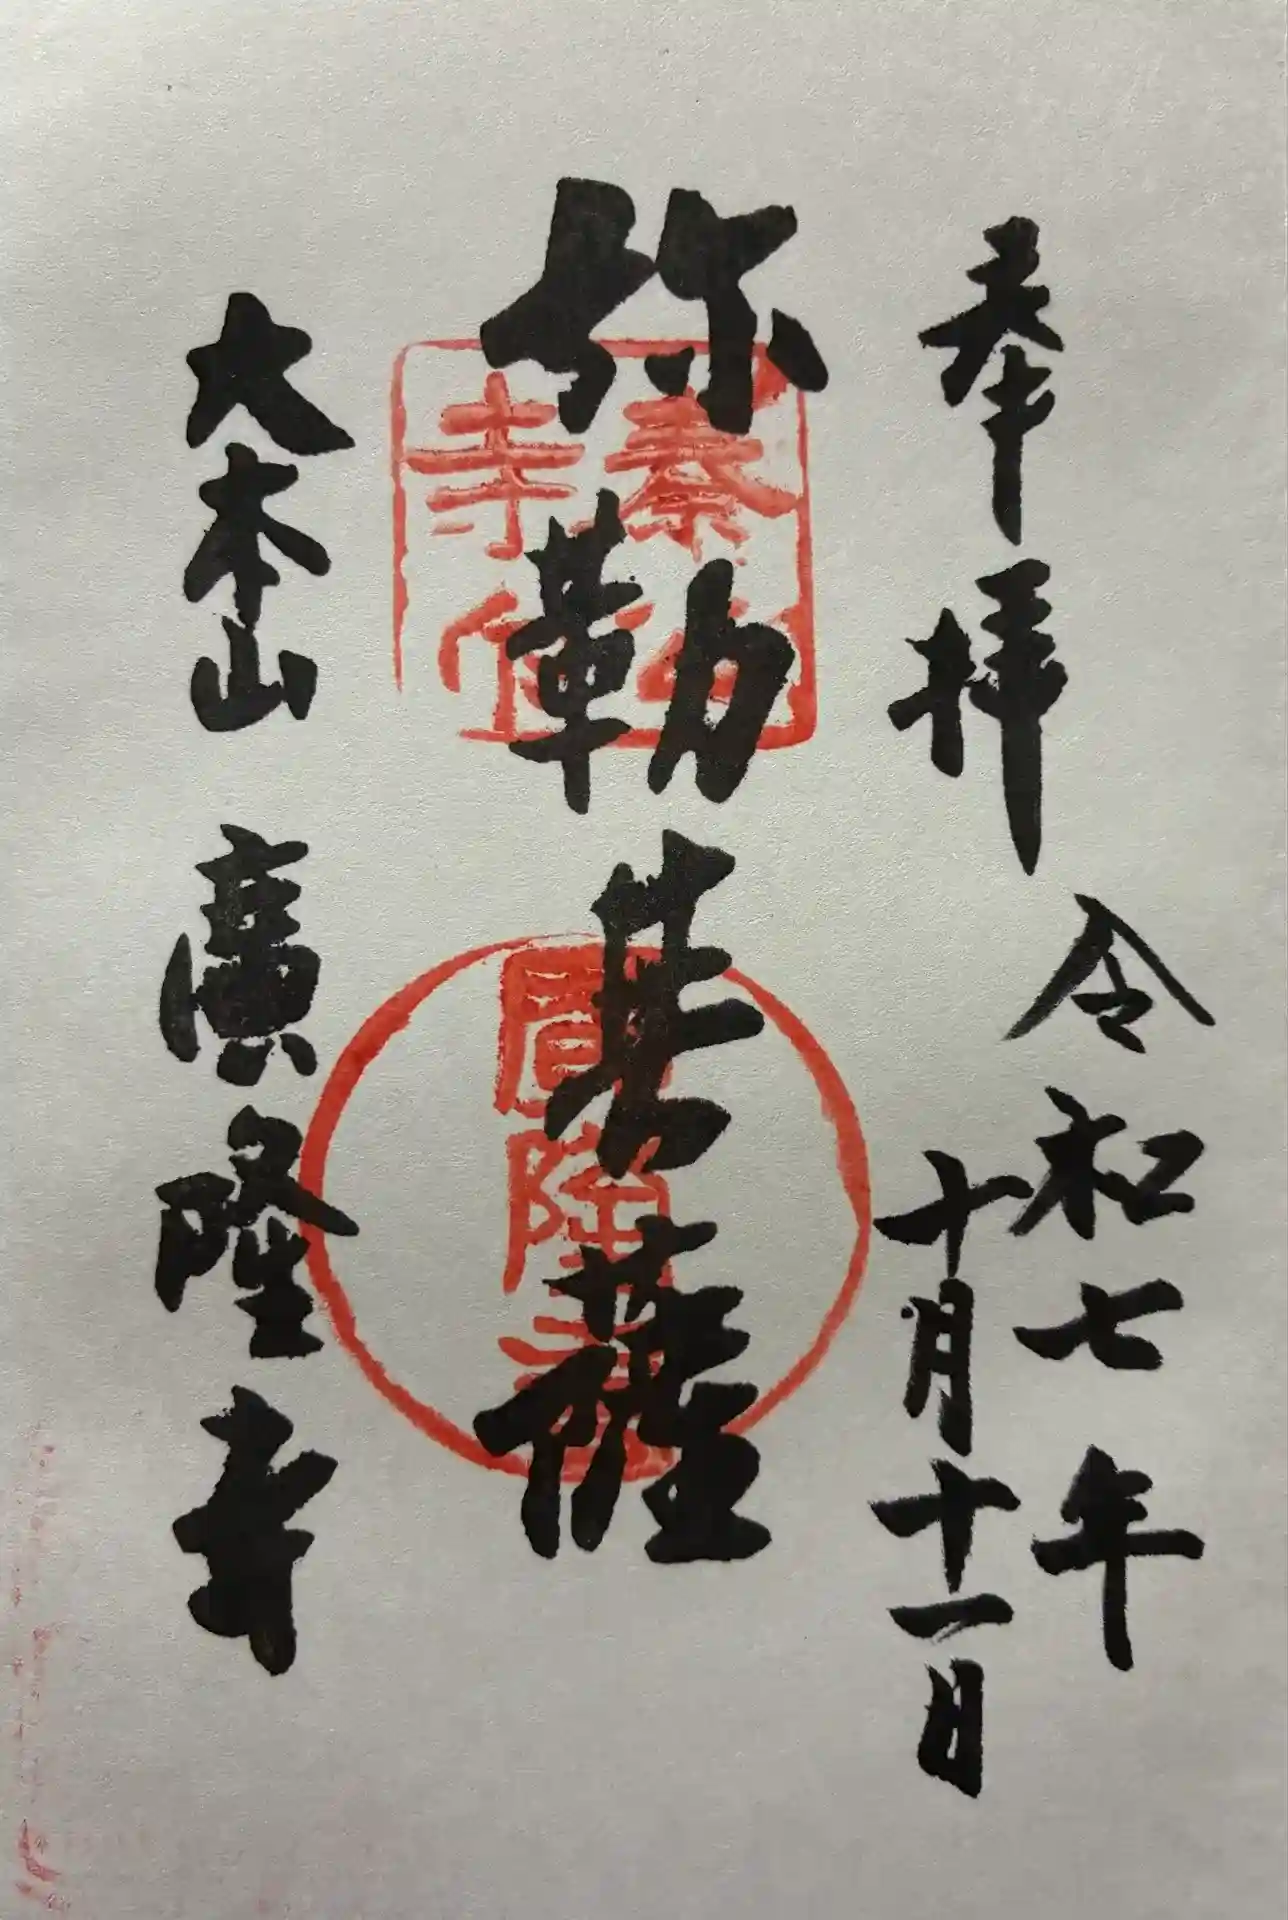 奉拝
令和七年
十月十一日
弥勒菩薩
秦公
寺宣
大本山 廣隆寺